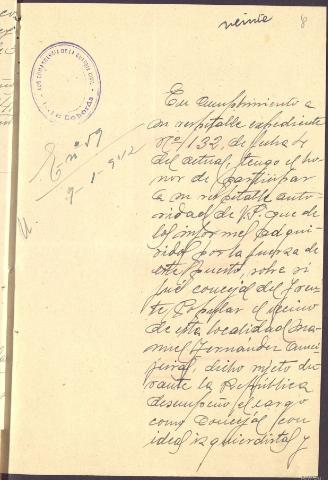 veinte 8
COMANDANCIA DE LA GUARDIA CIVIL
E nº 59
9-1-942
En cumplimiento a
su respetable expediente
Nº 132 de fecha 7
del actual, tengo el ho-
nor de participar
a su respetable auto-
ridad de V.S. que de
los informes adqui-
ridos por la fuerza de
este puesto, sobre si
fué concejal del Fren-
te Popular el vecino
de esta localidad Ma-
nuel Fernández
dicho sujeto du-
rante la República
desempeñó el cargo
como Concejal, con
ideal izquierdista y